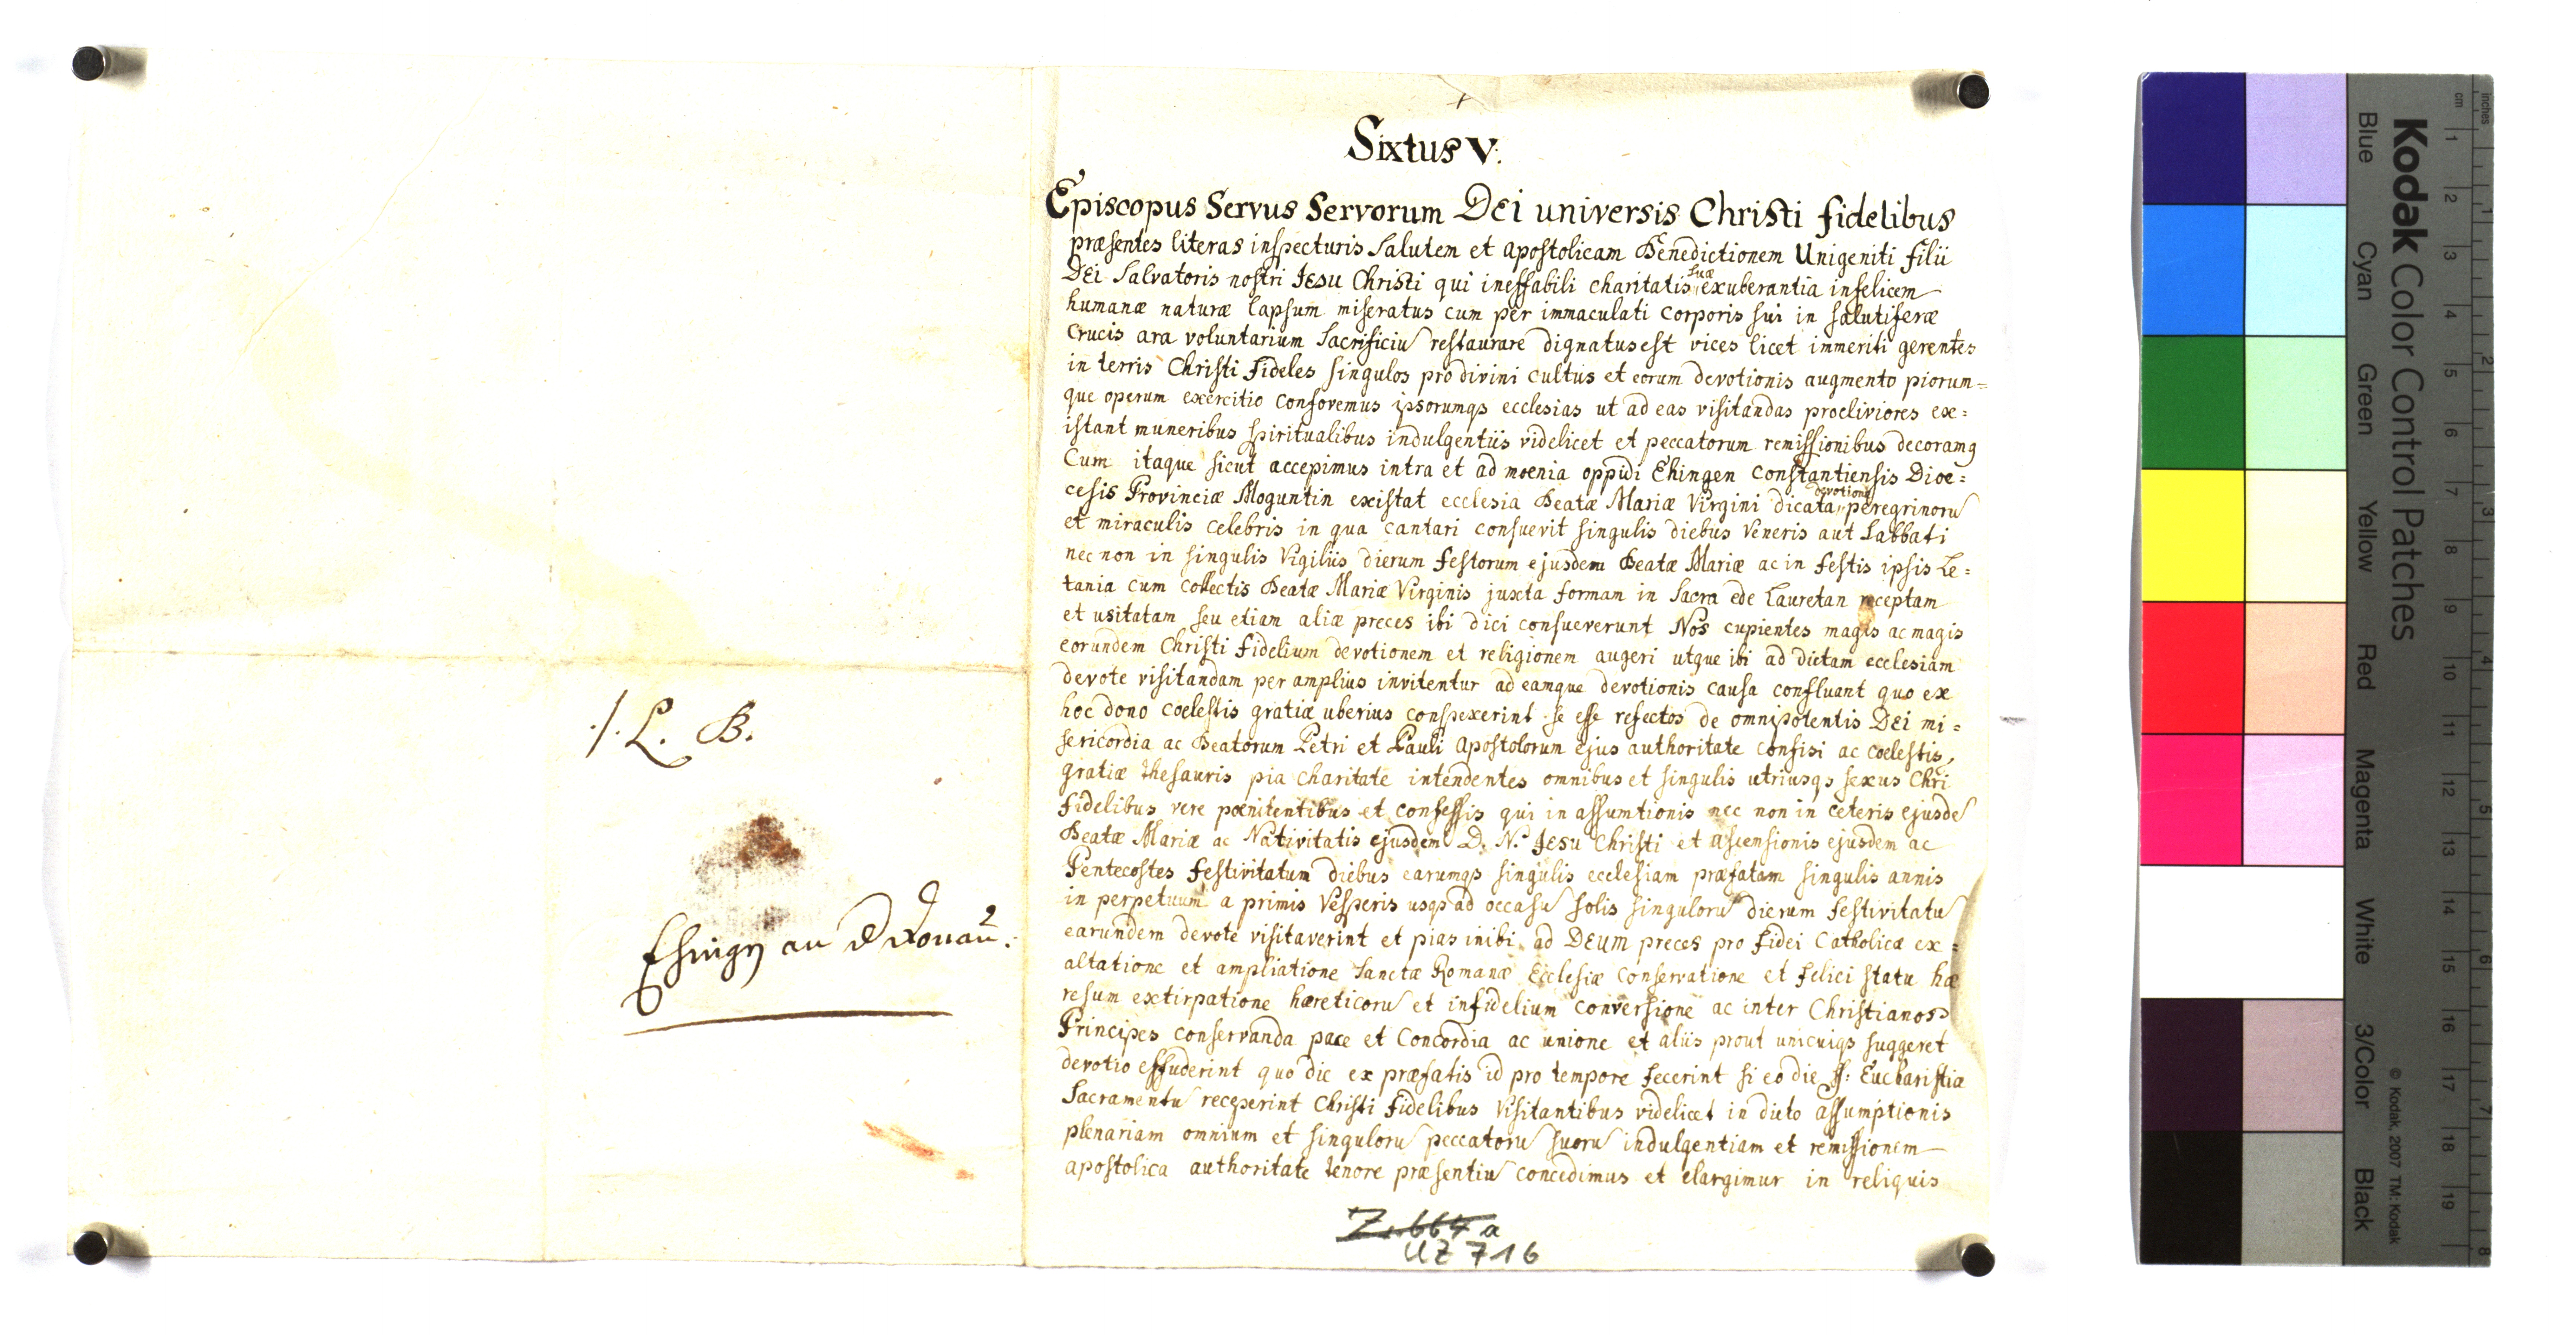 ./. L. B.
Ehingen an D Donau.
Sixtus V.
Episcopus Servus Servorum Dei universis Christi fidelibus
præsentes literas inspecturis Salutem et apostolicam Benedictionem Unigeniti filii
Dei Salvatoris nostri Jesu Christi qui ineffabili charitatis suæ exuberantia infelicem
humanæ naturæ lapsum miseratus cum per immaculati corporis sui in salutiferæ
Crucis ara voluntarium Sacrificiu restaurare dignatus est vices licet immeriti gerentes
in terris Christi fideles singulos pro divini cultus et eorum devotionis augmento piorum=
que operum exercitio confovemus ipsorumqs ecclesias ut ad eas visitandas procliviores ex=
istant muneribus spiritualibus indulgentiis videlicet et peccatorum remissionibus decoramq
Cum itaque sicut accepimus intra et ad moenia oppidi Ehingen Constantiensis Dioe=
cesis Provinciæ Moguntin existat ecclesia Beatæ Mariæ Virgini dicata devotione peregrinoru
et miraculis celebris in qua cantari consuevit singulis diebus Veneris aut Sabbati
nec non in singulis Vigiliis dierum festorum ejusdem Beatæ Mariæ ac in festis ipsis Le=
tania cum collectis Beatæ Mariæ Virginis juxta formam in Sacra ede Lauretan receptam
et usitatam seu etiam aliæ preces ibi dici consueverunt Nos cupientes magis ac magis
eorundem Christi fidelium devotionem et religionem augeri utque ibi ad dictam ecclesiam
devote visitandam per amplius invitentur ad eamque devotionis causa confluant quo ex
hoc dono coelestis gratiæ uberius conspexerint se esse refectos de omnipotentis Dei mi=
sericordia ac Beatorum Petri et Pauli Apostolorum ejus authoritate confisi ac coelestis
gratiæ thesauris pia charitate intendentes omnibus et singulis utriusqs sexus Chri
fidelibus vere poenitentibus et confessis qui in assumtionis nec non in ceteris ejusde
Beatæ Mariæ ac Nativitatis ejusdem D. N. Jesu Christi et ascensionis ejusdem ac
Pentecostes festivitatum diebus earumqs singulis ecclesiam præfatam singulis annis
in perpetuum a primis Vesperis usqs ad occasu solis singuloru dierum festivitatu
earundem devote visitaverint et pias inibi ad DEUM preces pro fidei Catholicæ ex=
altatione et ampliatione Sanctæ Romanæ Ecclesiæ conservatione et felici statu hæ
resum extirpatione hæreticoru et infidelium conversione ac inter Christianos
Principes conservanda pace et Concordia ac unione et aliis prout unicuiqs suggeret
devotio effuderint quo die ex præfatis id pro tempore fecerint si eo die ss: Eucharistiæ
Sacramentu receperint Christi fidelibus Visitantibus videlicet in dicto assumptionis
plenariam omnium et singuloru peccatoru suoru indulgentiam et remissionem
apostolica authoritate tenore præsentiu concedimus et elargimur in reliquis
Z. 664 a
UZ 716
Kodak Color Control Patches
© Kodak, 2007 TM: Kodak
inches
cm
1 2 3 4 5 6 7 8 9 10 11 12 13 14 15 16 17 18 19
1 2 3 4 5 6 7 8
Blue Cyan Green Yellow Red Magenta White 3/Color Black